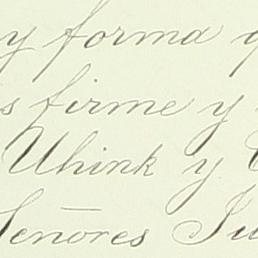 y forma
s firme y
Uhink y
Señores Ju